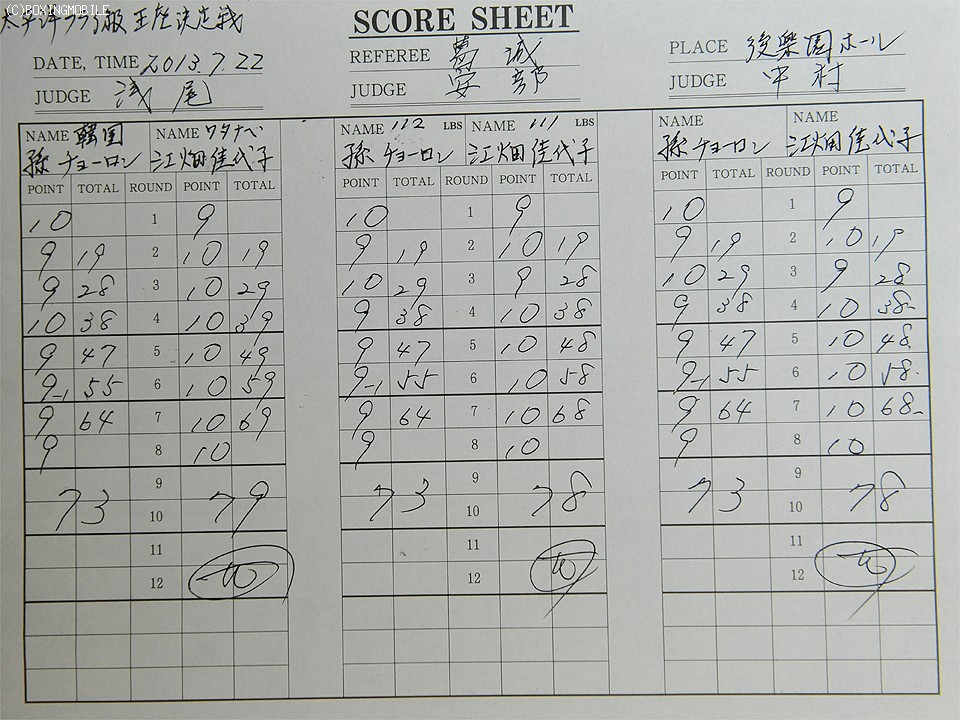 (C)BOXINGMOBILE
太平洋フライ級王座決定戦
SCORE SHEET
DATE, TIME 2013.7.22 REFEREE 葛城 PLACE 後楽園ホール
JUDGE 浅尾 JUDGE 安部 JUDGE 中村
NAME 韓国 NAME ワタナベ NAME 112 LBS NAME 111 LBS NAME NAME
孫チョーロン 江畑佳代子 孫チョーロン 江畑佳代子 孫チョーロン 江畑佳代子
POINT TOTAL ROUND POINT TOTAL POINT TOTAL ROUND POINT TOTAL POINT TOTAL ROUND POINT TOTAL
10 1 9 10 1 9 10 1 9
9 19 2 10 19 9 19 2 10 19 9 19 2 10 19
9 28 3 10 29 10 29 3 9 28 10 29 3 9 28
10 38 4 10 39 9 38 4 10 38 9 38 4 10 38
9 47 5 10 49 9 47 5 10 48 9 47 5 10 48
9-1 55 6 10 59 9-1 55 6 10 58 9-1 55 6 10 58
9 64 7 10 69 9 64 7 10 68 9 64 7 10 68
9 8 10 9 8 10 9 8 10
9 9 9
73 10 79 73 10 78 73 10 78
11 11 11
12 12 12